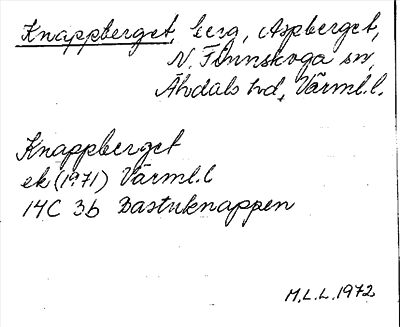 Knappberget, berg, Aspberget,
N. Finnskoga sn,
Älvdals hd, Värml.l.
Knappberget
ek (1971) Värml.l
14C 3b Bastuknappen
M.L.L. 1972